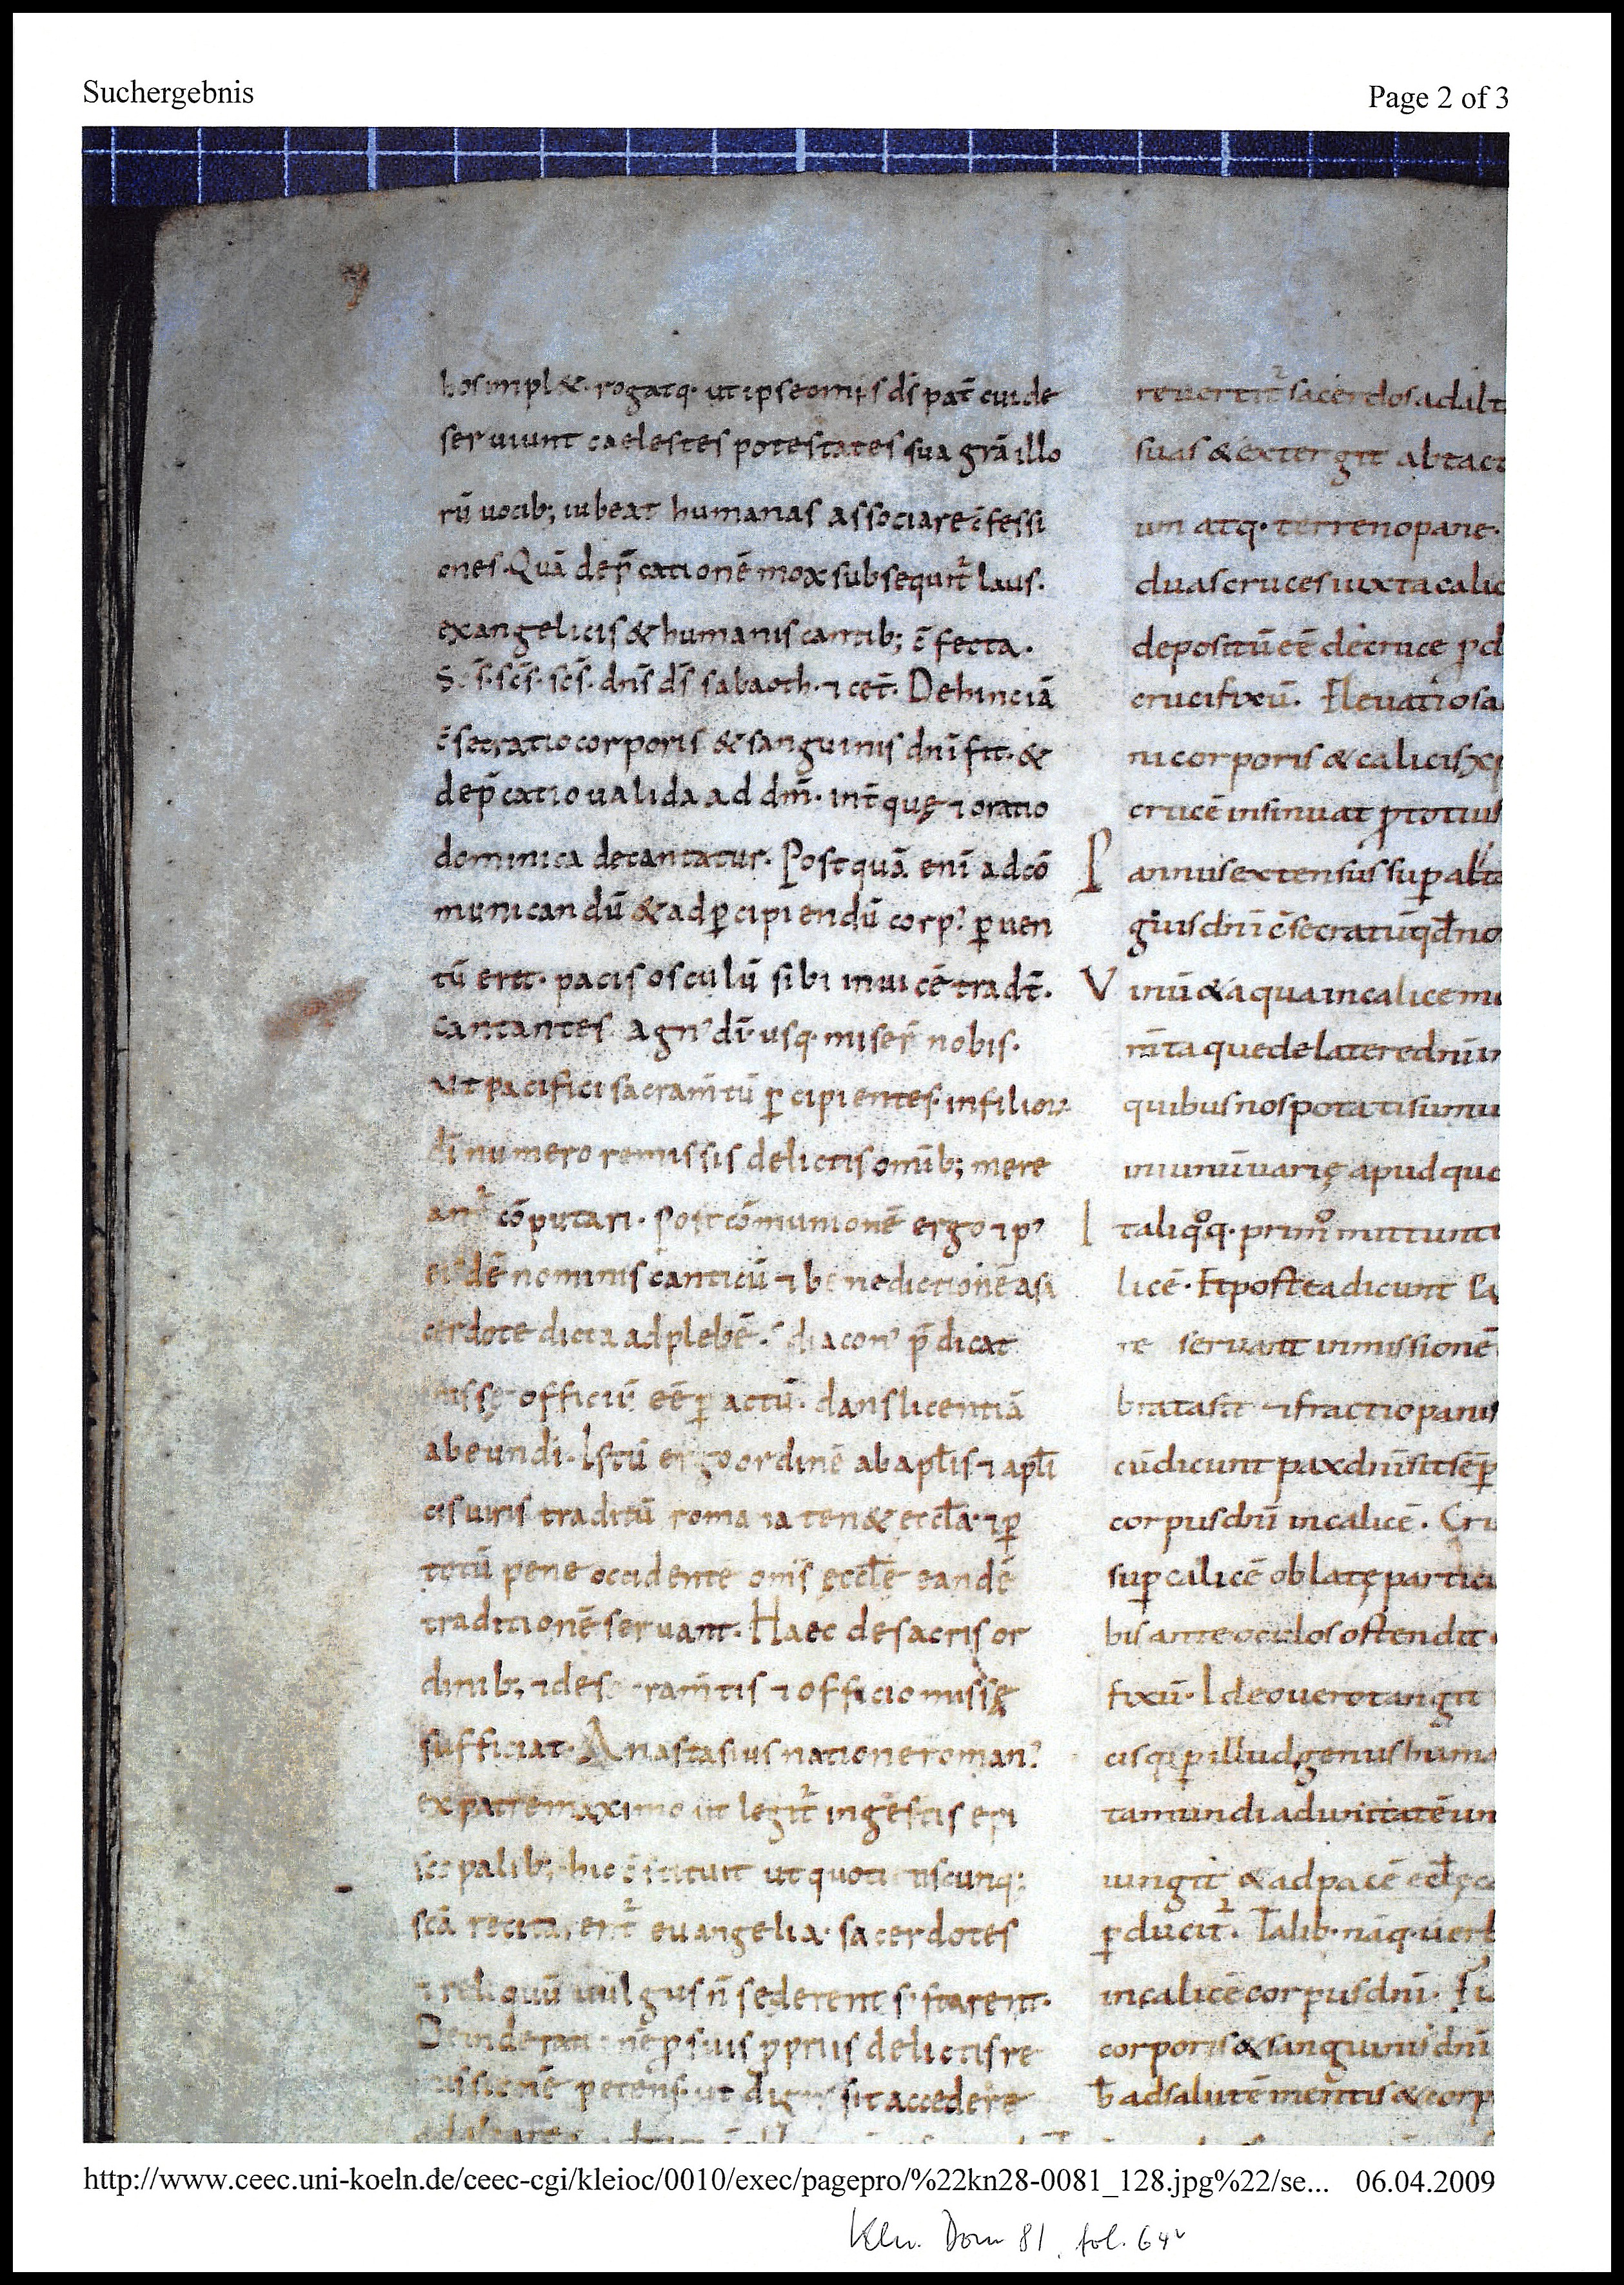 Suchergebnis
Page 2 of 3
bos impl&. rogatq. ut ipse omīs d̄s pat̄ cui de
seruiunt caelestes potestates sua grā illo
rū uocib; iubeat humanas associare c̄fessi
ones. Quā dep̄cationē mox subsequit̄ laus.
ex angelicis & humanis cantib; c̄fecta.
sc̄s. sc̄s. dn̄s d̄s sabaoth. ⁊ cet̄. Dehinc iā
c̄secratio corporis & sanguinis dn̄i fit. &
dep̄catio ualida ad dm̄. int̄ quę ⁊ oratio
dominica decantatur. Postquā enī ad cō
municandū & ad ꝑcipiendū corp᾽ ꝑuen
tū erit. pacis osculū sibi inuicē tradt̄.
cantantes agn᾽ dī. usq. miser̄ nobis.
ut pacifici sacram̄tū ꝑcipientes. in filioꝝ
dī numero remissis delictis om̄ib; mere
ant̄ cōputari. Post cōmunionē ergo ⁊ p᾽
ei᾽dē nominis canticū ⁊ benedictionē a sa
cerdote dicta ad plebē. diacon᾽ p̄dicat
missę officiū eē ꝑactū. dans licentiā
abeundi. Istū ergo ordinē ab apl̄is ⁊ apl̄i
cis uiris traditū romana ten& eccl̄a. ⁊ ꝑ
totū pene occidente om̄s ęccl̄e eandē
traditionē seruant. Haec de sacris or
dinib; ⁊ de sacram̄tis ⁊ officio missę
sufficiat. Anastasius natione roman᾽
ex patre maximo ut legit̄ in gēstis epi
scopalib; hic c̄stituit ut quotienscunq;
scā recitarent̄ euangelia. sacerdotes
⁊ reliquū uulgus n̄ sederent s. starent.
Deinde ꝓ suis ꝓpriis delictis re
missionē petens. ut dign᾽ sit accedere
reuertit̄ sacerdos ad alt
suas & extergit ab tact
um atq. terreno pane.
duas cruces iuxta calic
depositū eē de cruce ꝑ d
crucifixū. Eleuatio sa
ni corporis & calicis xp
crucē insinuat ꝓ totius
Pannus extensus sup̄ alta
gius dn̄i c̄secratū qd̄ no
Vinū & aqua in calice mi
m̄ta que de latere dn̄i in
quibus nos potati sumu
in unū uarię apud quo
Itali q°q. prim° mittunt
licē. Et postea dicunt Pa
te seruant inmissionē
brata sit ⁊ fractio panis
cū dicunt pax dn̄i sit sēp
corpus dn̄i in calicē. Cru
sup̄ calicē oblatę particu
bis ante oculos ostendit
fixū. Ideo uero tangit
cis qi ꝑ illud genus huma
ta mundi ad unitatē un
iungit & ad pacē eccl̄ę ca
ꝑducit̄. Talib. nāq. uerb
in calicē corpus dn̄i.
corporis & sanguinis dn̄i
b̄ ad salutē mentis & corp
http://www.ceec.uni-koeln.de/ceec-cgi/kleioc/0010/exec/pagepro/%22kn28-0081_128.jpg%22/se... 06.04.2009
Kln. Dom 81, fol. 64v